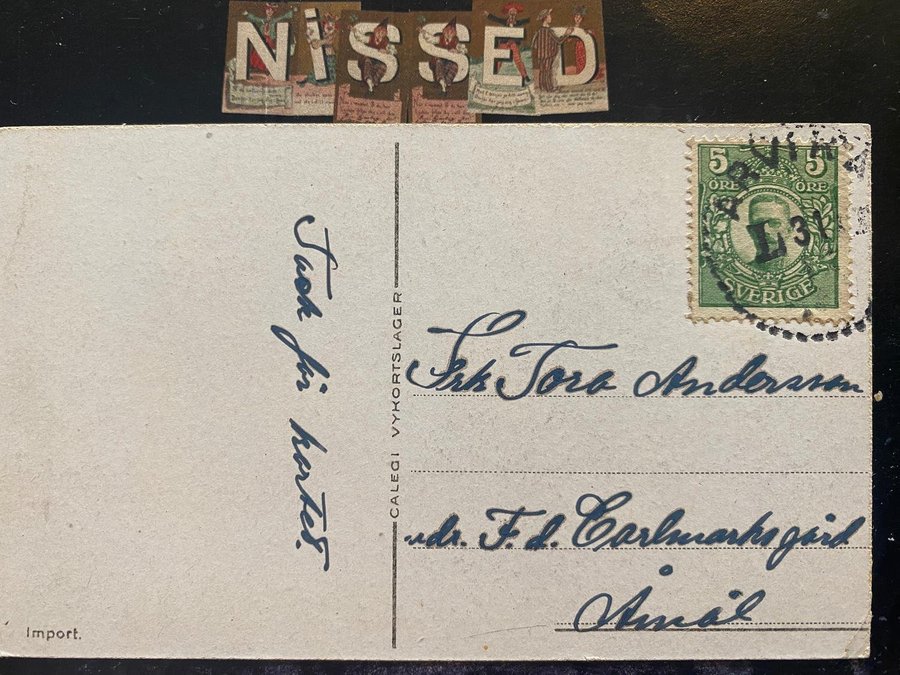 NiSSED
5 5
ÖRE ÖRE
ARVIKA
L 31
SVERIGE
Tack för kortet.
CALEGI VYKORTSLAGER
Frk Tora Andersson
adr. F. d. Carlmarksgård
Åmål
Import.